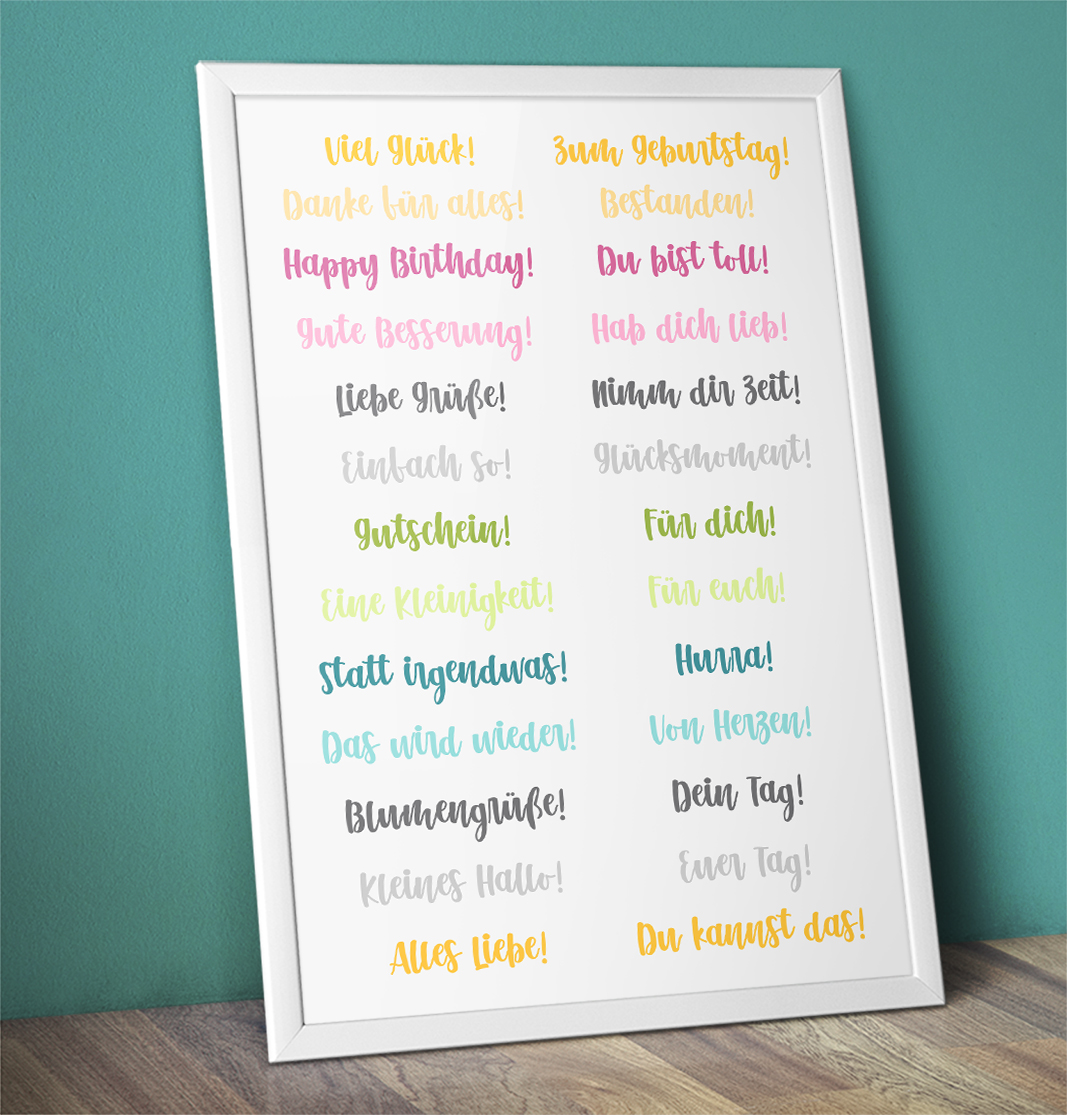 Viel Glück!
Zum Geburtstag!
Danke für alles!
Bestanden!
Happy Birthday!
Du bist toll!
Gute Besserung!
Hab dich lieb!
Liebe Grüße!
Nimm dir Zeit!
Einfach so!
Glücksmoment!
Gutschein!
Für dich!
Eine Kleinigkeit!
Für euch!
Statt irgendwas!
Hurra!
Das wird wieder!
Von Herzen!
Blumengrüße!
Dein Tag!
Kleines Hallo!
Euer Tag!
Alles Liebe!
Du kannst das!